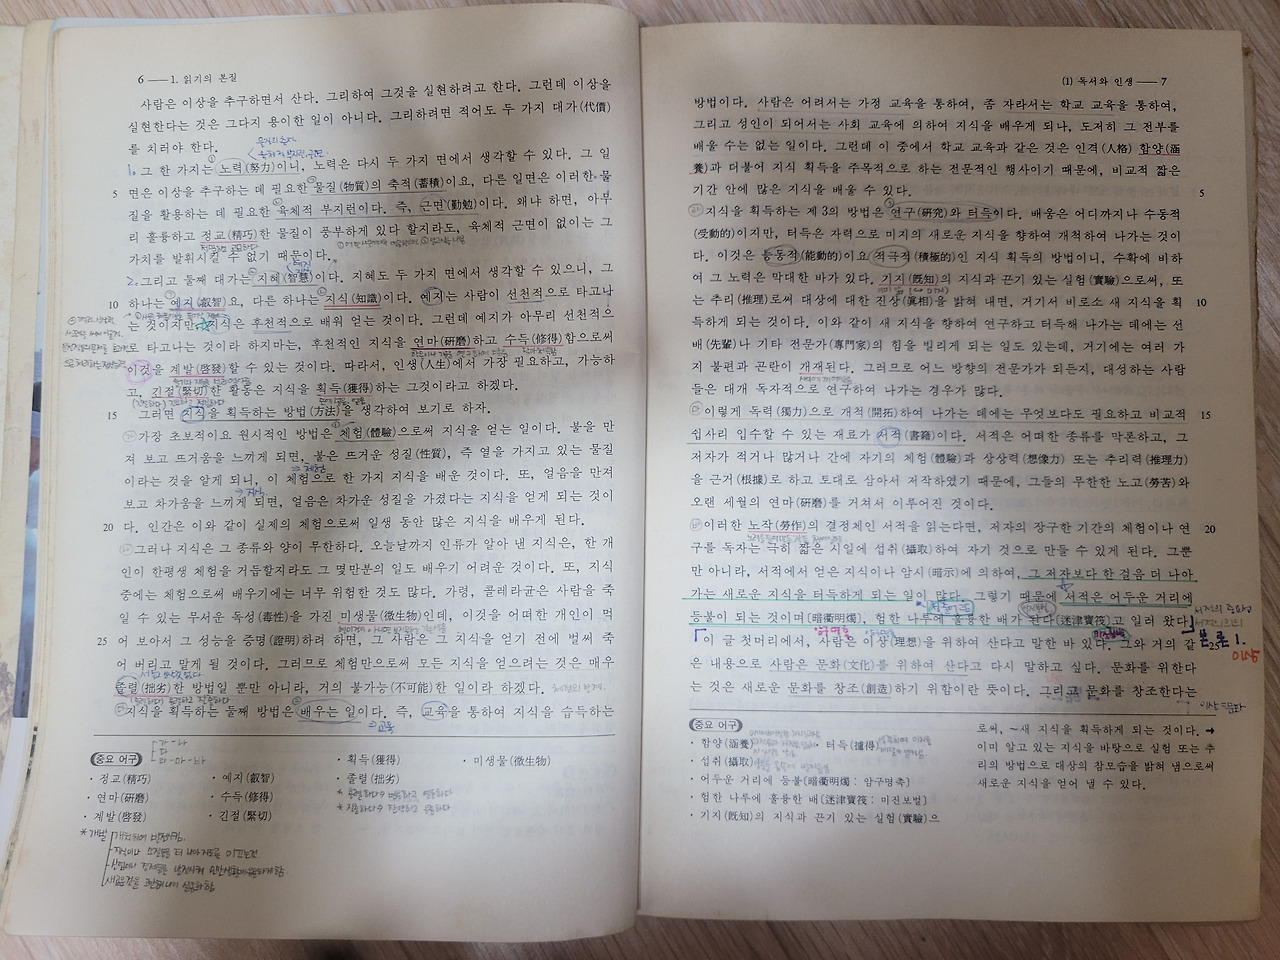 6 ── 1. 읽기의 본질
사람은 이상을 추구하면서 산다. 그리하여 그것을 실현하려고 한다. 그런데 이상을
실현한다는 것은 그다지 용이한 일이 아니다. 그리하려면 적어도 두 가지 대가(代價)
를 치러야 한다.
1. 그 한 가지는 노력(努力)이니, 노력은 다시 두 가지 면에서 생각할 수 있다. 그 일
5 면은 이상을 추구하는 데 필요한 물질(物質)의 축적(蓄積)이요, 다른 일면은 이러한 물
질을 활용하는 데 필요한 육체적 부지런이다. 즉, 근면(勤勉)이다. 왜냐 하면, 아무
리 훌륭하고 정교(精巧)한 물질이 풍부하게 있다 할지라도, 육체적 근면이 없이는 그
가치를 발휘시킬 수 없기 때문이다.
2. 그리고 둘째 대가는 지혜(智慧)이다. 지혜도 두 가지 면에서 생각할 수 있으니, 그
10 하나는 예지(叡智)요, 다른 하나는 지식(知識)이다. 예지는 사람이 선천적으로 타고나
는 것이지만, 지식은 후천적으로 배워 얻는 것이다. 그런데 예지가 아무리 선천적으
로 타고나는 것이라 하지마는, 후천적인 지식을 연마(硏磨)하고 수득(修得)함으로써
이것을 계발(啓發)할 수 있는 것이다. 따라서, 인생(人生)에서 가장 필요하고, 가능하
고, 긴절(緊切)한 활동은 지식을 획득(獲得)하는 그것이라고 하겠다.
15 그러면 지식을 획득하는 방법(方法)을 생각하여 보기로 하자.
가장 초보적이요 원시적인 방법은 체험(體驗)으로써 지식을 얻는 일이다. 불을 만
져 보고 뜨거움을 느끼게 되면, 불은 뜨거운 성질(性質), 즉 열을 가지고 있는 물질
이라는 것을 알게 되니, 이 체험으로 한 가지 지식을 배운 것이다. 또, 얼음을 만져
보고 차가움을 느끼게 되면, 얼음은 차가운 성질을 가졌다는 지식을 얻게 되는 것이
20 다. 인간은 이와 같이 실제의 체험으로써 일생 동안 많은 지식을 배우게 된다.
그러나 지식은 그 종류와 양이 무한하다. 오늘날까지 인류가 알아 낸 지식은, 한 개
인이 한평생 체험을 거듭할지라도 그 몇만분의 일도 배우기 어려운 것이다. 또, 지식
중에는 체험으로써 배우기에는 너무 위험한 것도 많다. 가령, 콜레라균은 사람을 죽
일 수 있는 무서운 독성(毒性)을 가진 미생물(微生物)인데, 이것을 어떠한 개인이 먹
25 어 보아서 그 성능을 증명(證明)하려 하면, 그 사람은 그 지식을 얻기 전에 벌써 죽
어 버리고 말게 될 것이다. 그러므로 체험만으로써 모든 지식을 얻으려는 것은 매우
졸렬(拙劣)한 방법일 뿐만 아니라, 거의 불가능(不可能)한 일이라 하겠다.
지식을 획득하는 둘째 방법은 배우는 일이다. 즉, 교육을 통하여 지식을 습득하는
중요 어구
· 정교(精巧) · 예지(叡智) · 획득(獲得) · 미생물(微生物)
· 연마(硏磨) · 수득(修得) · 졸렬(拙劣)
· 계발(啓發) · 긴절(緊切)
* 개발
(1) 독서와 인생 ── 7
방법이다. 사람은 어려서는 가정 교육을 통하여, 좀 자라서는 학교 교육을 통하여,
그리고 성인이 되어서는 사회 교육에 의하여 지식을 배우게 되나, 도저히 그 전부를
배울 수는 없는 일이다. 그런데 이 중에서 학교 교육과 같은 것은 인격(人格) 함양(涵
養)과 더불어 지식 획득을 주목적으로 하는 전문적인 행사이기 때문에, 비교적 짧은
기간 안에 많은 지식을 배울 수 있다. 5
지식을 획득하는 제 3의 방법은 연구(硏究)와 터득이다. 배움은 어디까지나 수동적
(受動的)이지만, 터득은 자력으로 미지의 새로운 지식을 향하여 개척하여 나가는 것이
다. 이것은 능동적(能動的)이요 적극적(積極的)인 지식 획득의 방법이니, 수확에 비하
여 그 노력은 막대한 바가 있다. 기지(旣知)의 지식과 끈기 있는 실험(實驗)으로써, 또
는 추리(推理)로써 대상에 대한 진상(眞相)을 밝혀 내면, 거기서 비로소 새 지식을 획 10
득하게 되는 것이다. 이와 같이 새 지식을 향하여 연구하고 터득해 나가는 데에는 선
배(先輩)나 기타 전문가(專門家)의 힘을 빌리게 되는 일도 있는데, 거기에는 여러 가
지 불편과 곤란이 개재된다. 그러므로 어느 방향의 전문가가 되든지, 대성하는 사람
들은 대개 독자적으로 연구하여 나가는 경우가 많다.
이렇게 독력(獨力)으로 개척(開拓)하여 나가는 데에는 무엇보다도 필요하고 비교적 15
쉽사리 입수할 수 있는 재료가 서적(書籍)이다. 서적은 어떠한 종류를 막론하고, 그
저자가 적거나 많거나 간에 자기의 체험(體驗)과 상상력(想像力) 또는 추리력(推理力)
을 근거(根據)로 하고 토대로 삼아서 저작하였기 때문에, 그들의 무한한 노고(勞苦)와
오랜 세월의 연마(硏磨)를 거쳐서 이루어진 것이다.
이러한 노작(勞作)의 결정체인 서적을 읽는다면, 저자의 장구한 기간의 체험이나 연 20
구를 독자는 극히 짧은 시일에 섭취(攝取)하여 자기 것으로 만들 수 있게 된다. 그뿐
만 아니라, 서적에서 얻은 지식이나 암시(暗示)에 의하여, 그 저자보다 한 걸음 더 나아
가는 새로운 지식을 터득하게 되는 일이 많다. 그렇기 때문에 서적은 어두운 거리에
등불이 되는 것이며〔暗衢明燭〕, 험한 나루에 훌륭한 배가 된다〔迷津寶筏〕고 일러 왔다.
이 글 첫머리에서, 사람은 이상(理想)을 위하여 산다고 말한 바 있다. 그와 거의 같 25
은 내용으로 사람은 문화(文化)를 위하여 산다고 다시 말하고 싶다. 문화를 위한다
는 것은 새로운 문화를 창조(創造)하기 위함이란 뜻이다. 그리고 문화를 창조한다는
본론 1.
중요 어구
· 함양(涵養) · 터득(攄得)
· 섭취(攝取)
· 어두운 거리에 등불〔暗衢明燭 : 암구명촉〕
· 험한 나루에 훌륭한 배〔迷津寶筏 : 미진보벌〕
· 기지(旣知)의 지식과 끈기 있는 실험(實驗)으
로써, ～새 지식을 획득하게 되는 것이다. →
이미 알고 있는 지식을 바탕으로 실험 또는 추
리의 방법으로 대상의 참모습을 밝혀 냄으로써
새로운 지식을 얻어 낼 수 있다.